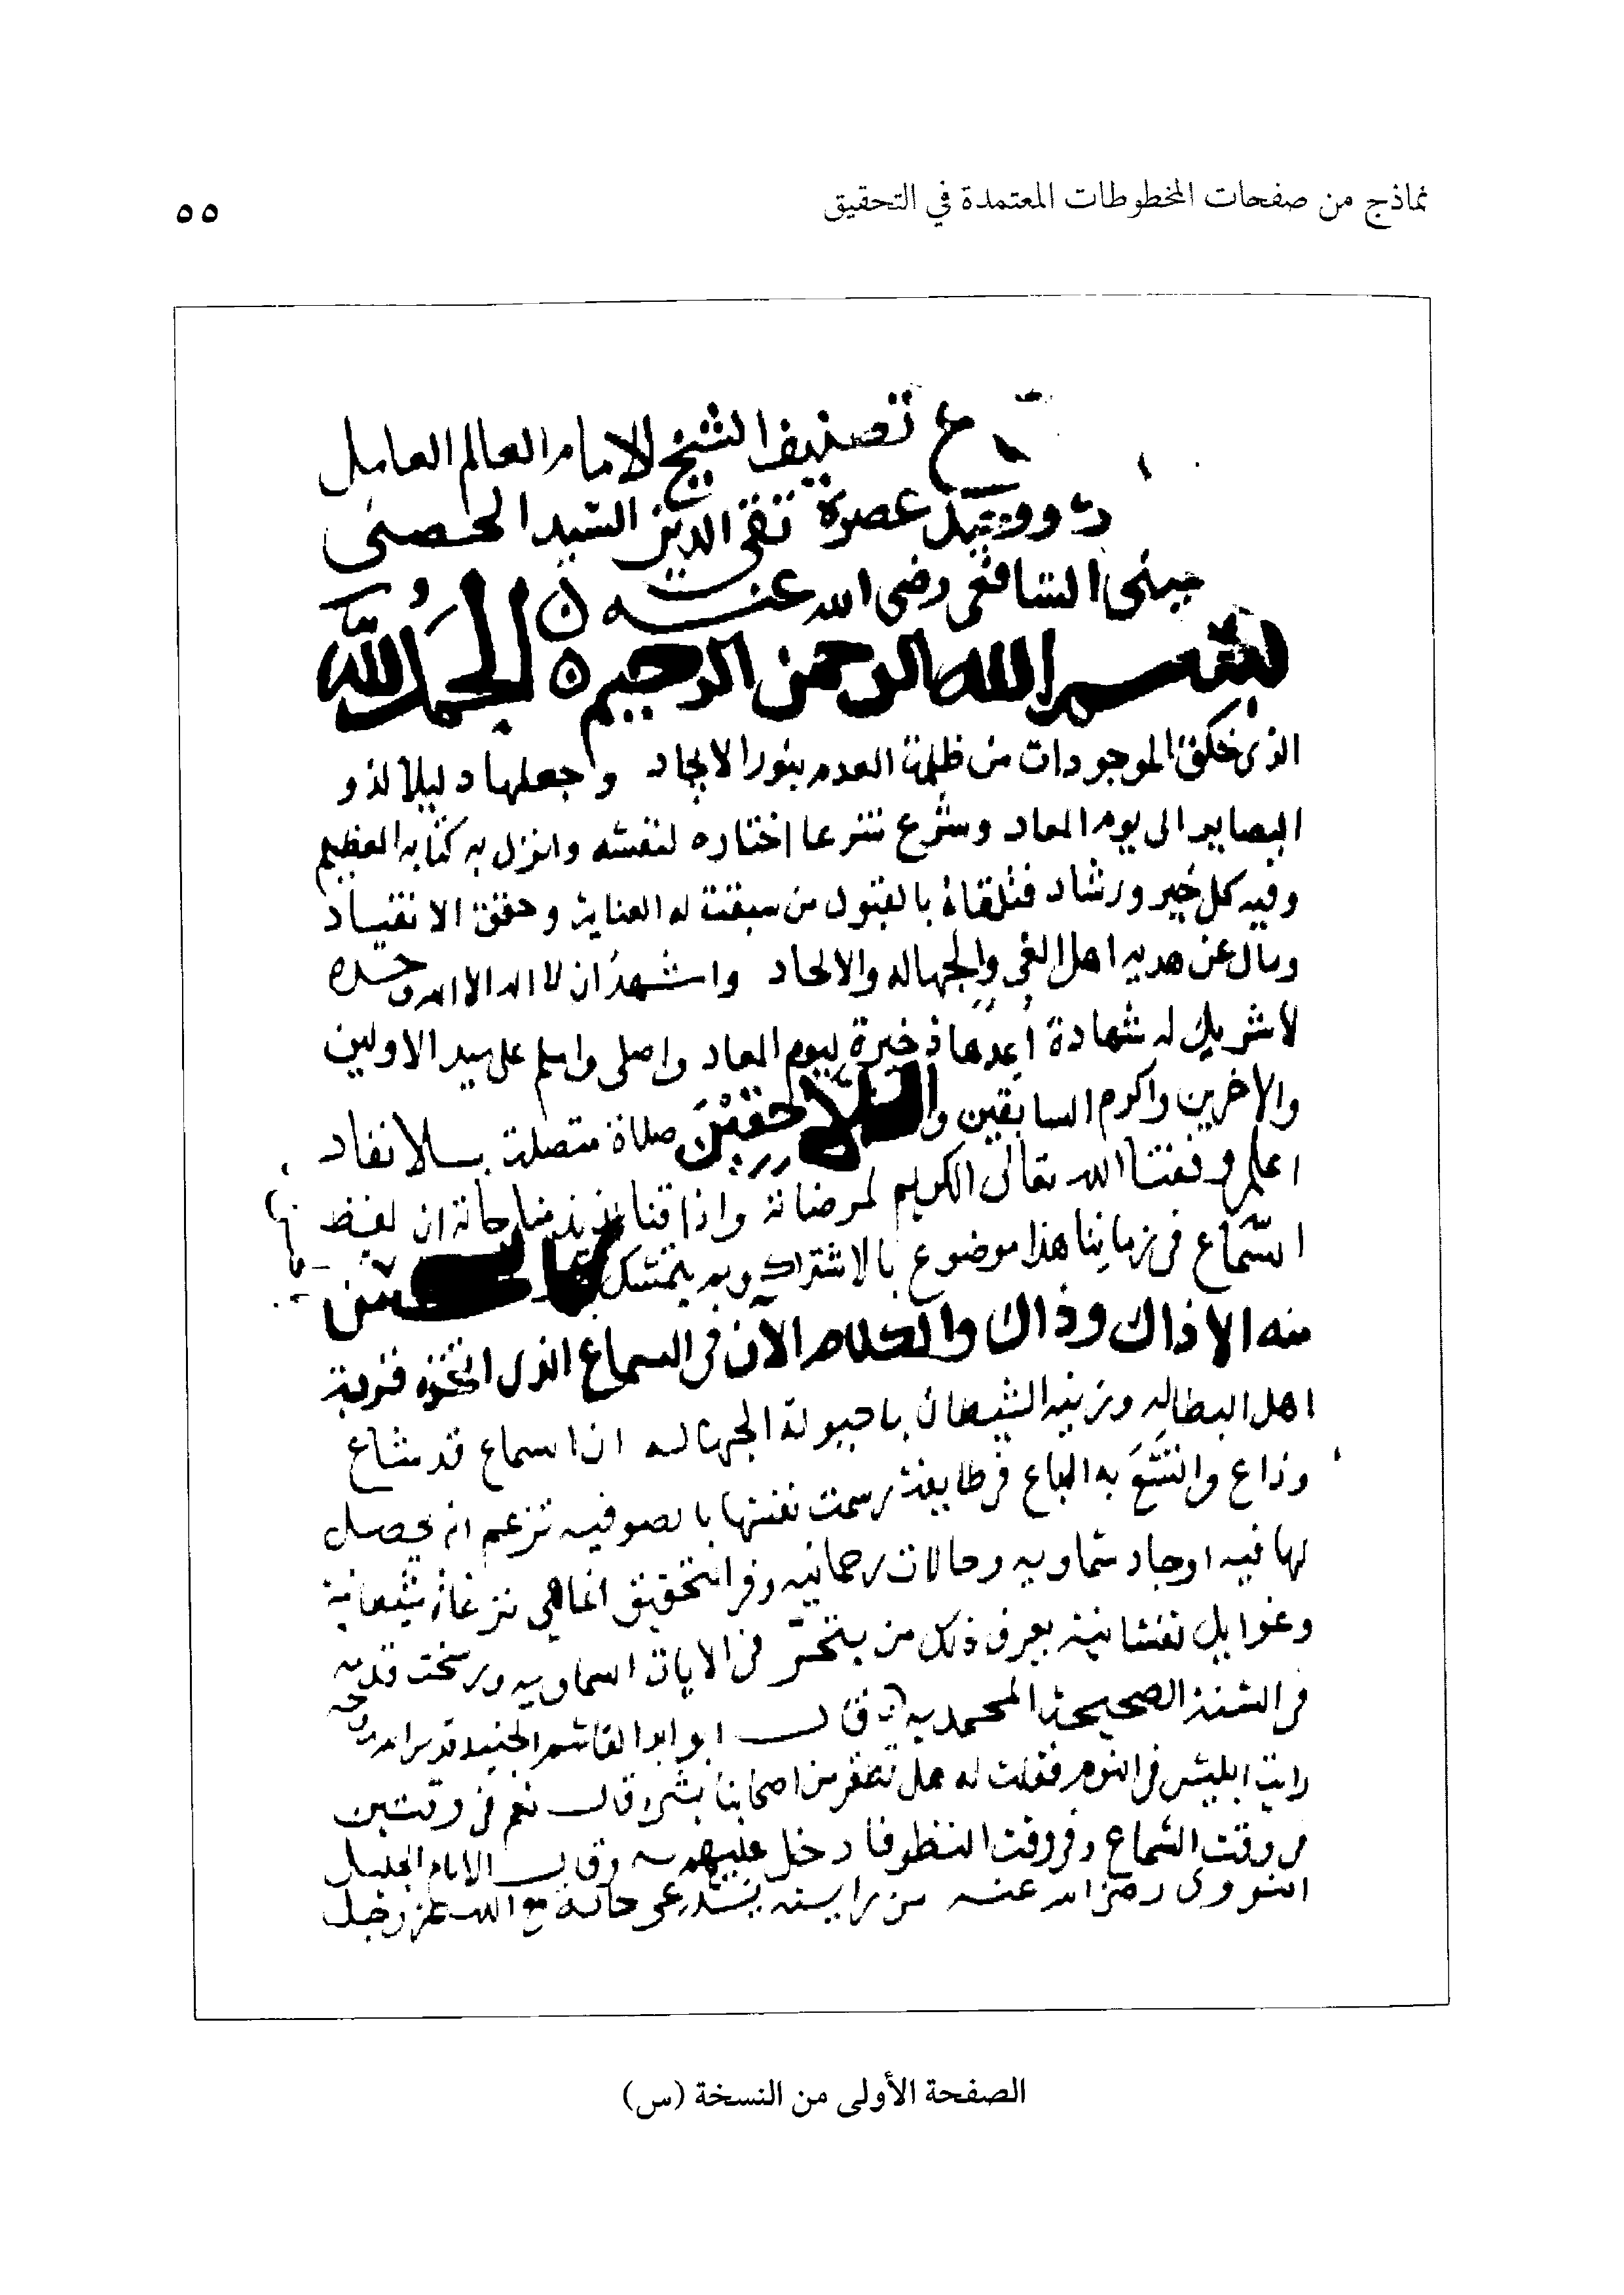 نماذج من صفحات المخطوطات المعتمدة في التحقيق
٥٥
تصنيف الشيخ الامام العالم العامل
عصره تقى الدين السيد الحصنى
الشافعى رضى الله عنه
بسم الله الرحمن الرحيم الحمد لله
الذى خلق الموجودات من ظلمة العدم بنور الايجاد وجعلها دليلا لذو
البصاير الى يوم المعاد وشرع شرعا اختاره لنفسه وانزل به كتابه العظيم
وفيه كل خير ورشاد فتلقاه بالقبول من سبقت له العناية وحقق الانقياد
ومال عن هديه اهل الغى والجهاله والالحاد واشهد ان لا اله الا الله وحده
لا شريك له شهادة اعدها ذخيرة ليوم المعاد واصلى واسلم على سيد الاولين
والاخرين واكرم السابقين واللاحقين صلاة متصلة بلا نفاد
اعلم وفقنا الله تعالى الكريم لمرضاته واذاقنا لذيذ مناجاته ان لفظ
السماع فى زماننا هذا موضوع بالاشتراك وبه يتمسك
منه الا ذاك وذاك والكلام الآن فى السماع الذى اتخذه قربة
اهل البطاله وزينه الشيطان باحبولة الجهاله ان السماع قد شاع
وذاع به فى طايفة رسمت نفسها بالصوفيه تزعم انه يحصل
لها فيه اوجاد سماويه وحالات رحمانيه وفى التحقيق انما هى نزغاة شيطانية
وغوايل نفسانية يعرف ذلك من يتحر فى الايات السماويه ورسخت قدمه
فى السنة الصحيحة المحمديه قال ابو القاسم الجنيد قدس الله روحه
رايت ابليس فى النوم فقلت له هل تظفر من اصحابنا بشى قال نعم فى وقتين
فى وقت السماع وفى وقت النظر فادخل عليهم به وقال الامام الجليل
النووى رضى الله عنه من رايته يدعى حالة مع الله عز وجل
الصفحة الأولى من النسخة (س)